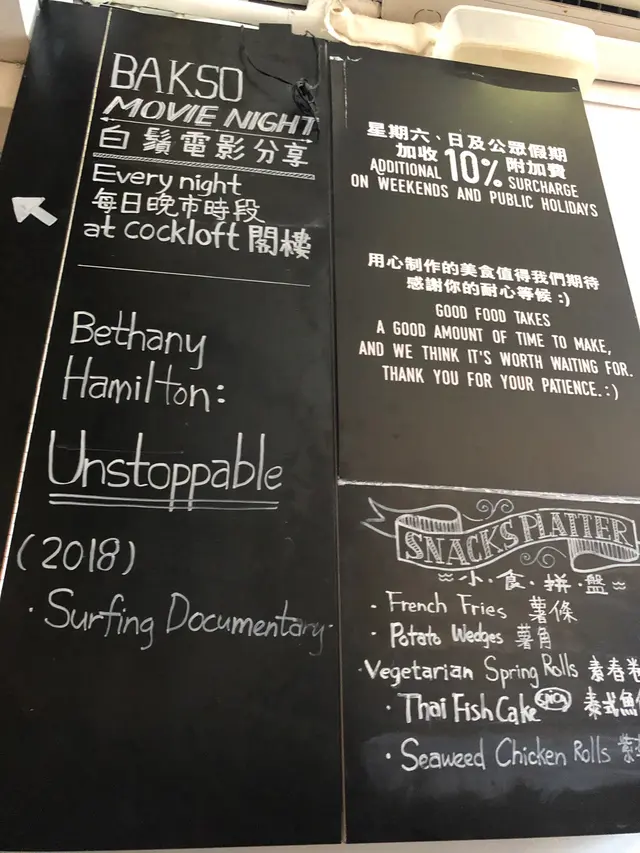 BAKSO
MOVIE NIGHT
白鬚電影分享
Every night
每日晚市時段
at cockloft 閣樓
Bethany
Hamilton:
Unstoppable
(2018)
· Surfing Documentary
星期六、日及公眾假期
加收 10% 附加費
ADDITIONAL 10% SURCHARGE
ON WEEKENDS AND PUBLIC HOLIDAYS
用心制作的美食值得我們期待
感謝你的耐心等候 :)
GOOD FOOD TAKES
A GOOD AMOUNT OF TIME TO MAKE,
AND WE THINK IT'S WORTH WAITING FOR.
THANK YOU FOR YOUR PATIENCE. :)
SNACKS PLATTER
小·食·拼·盤
· French Fries 薯條
· Potato Wedges 薯角
· Vegetarian Spring Rolls 素春卷
· Thai Fish Cake SPICY 泰式魚
· Seaweed Chicken Rolls 紫